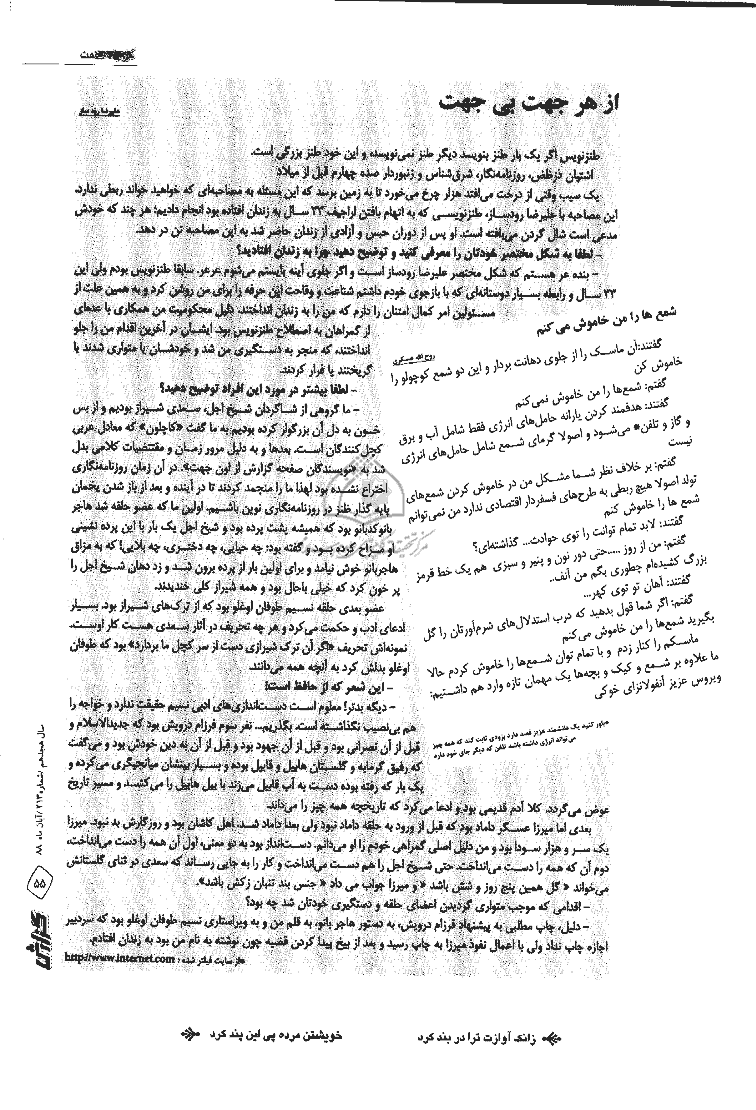 از هر جهت بی جهت
علیرضا رودساز
طنزنویس اگر یک بار طنز بنویسد دیگر طنز نمی‌نویسد، و این خود طنز بزرگی است.
اشتهان درظفن، روزنامه‌نگار، شرق‌شناس و زنبوردار صده چهارم قبل از میلاد
یک سیب وقتی از درخت می‌افتد هزار چرخ می‌خورد تا به زمین برسد که این مسئله به مصاحبه‌ای که خواهید خواند ربطی ندارد.
این مصاحبه با علیرضا رودساز، طنزنویسی که به اتهام بافتن اراجیف، ۳۳ سال به زندان افتاده بود انجام دادیم؛ هر چند که خودش
مدعی است شال گردن می‌بافته است. او پس از دوران حبس و آزادی از زندان حاضر شد به این مصاحبه تن در دهد.
- لطفا به شکل مختصر خودتان را معرفی کنید و توضیح دهید چرا به زندان افتادید؟
- بنده عر هستم که شکل مختصر علیرضا رودساز است و اگر جلوی آینه بایستم می‌شوم عرعر. سابقا طنزنویس بودم ولی این
۳۳ سال و رابطه بسیار دوستانه‌ای که با بازجوی خودم داشتم شناعت و وقاحت این حرفه را برای من روشن کرد و به همین علت از
مسئولین امر کمال امتنان را دارم که من را به زندان انداختند. دلیل محکومیت من همکاری با عده‌ای
از گمراهان به اصطلاح طنزنویس بود. ایشان در آخرین اقدام من را جلو
انداختند، که منجر به دستگیری من شد و خودشان یا متواری شدند یا
گریختند یا فرار کردند.
- لطفا بیشتر در مورد این افراد توضیح دهید؟
- ما گروهی از شاگردان شیخ اجل، سعدی شیراز بودیم و از بس
خون به دل آن بزرگوار کرده بودیم به ما گفت «کاچلون» که معادل عربی
کچل‌کنندگان است. بعدها و به دلیل مرور زمان و مقتضیات کلامی بدل
شد به «نویسندگان صفحه گزارش از اون جهت». در آن زمان روزنامه‌نگاری
اختراع نشده بود لهذا ما را منجمد کردند تا در آینده و بعد از باز شدن یخمان
پایه گذار طنز در روزنامه‌نگاری نوین باشیم. اولین ما که عضو حلقه شد هاجر
بانو کدبانو بود که همیشه پشت پرده بود و شیخ اجل یک بار با این پرده نشینی
او مزاح کرده بود و گفته بود: چه حیایی، چه دختری، چه بلایی! که به مزاق
هاجربانو خوش نیامد و برای اولین بار از پرده برون شد و زد دهان شیخ اجل را
پر خون کرد که خیلی باحال بود و همه شیراز کلی خندیدند.
عضو بعدی حلقه نسیم طوفان اوغلو بود که از ترک‌های شیراز بود. بسیار
ادعای ادب و حکمت می‌کرد و هر چه تحریف در آثار سعدی هست کار اوست.
نمونه‌اش تحریف «اگر آن ترک شیرازی دست از سر کچل ما بردارد» بود که طوفان
اوغلو بدلش کرد به آنچه همه می‌دانند.
- این شعر که از حافظ است!
- دیگه بدتر! معلوم است دست‌اندازی‌های ادبی نسیم حقیقت ندارد و خواجه را
هم بی‌نصیب نگذاشته است. بگذریم... نفر سوم فرزام درویش بود که جدیدالاسلام و
قبل از آن نصرانی بود و قبل از آن جهود بود و قبل از آن به دین خودش بود و می‌گفت
که رفیق گرمابه و گلستان هابیل و قابیل بوده و بسیار بینشان میانجیگری می‌کرده و
یک بار که رفته بوده دست به آب قابیل می‌زند با بیل هابیل را می‌کشد و مسیر تاریخ
عوض می‌گردد. کلا آدم قدیمی بود و ادعا می‌کرد که تاریخچه همه چیز را می‌داند.
بعدی اما میرزا عسگر داماد بود که قبل از ورود به حلقه داماد نبود ولی بعدا داماد شد. اهل کاشان بود و روزگارش بد نبود. میرزا
یک سر و هزار سودا بود و من دلیل اصلی گمراهی خودم را او می‌دانم. دست‌انداز بود به دو معنی، اول آن همه را دست می‌انداخت،
دوم آن که همه را دست می‌انداخت. حتی شیخ اجل را هم دست می‌انداخت و کار را به جایی رساند که سعدی در ثنای گلستانش
می‌خواند « گل همین پنج روز و شش باشد » و میرزا جواب می داد « جنس بند تنبان زکش باشد».
- اقدامی که موجب متواری گردیدن اعضای حلقه و دستگیری خودتان شد چه بود؟
- دلیل، چاپ مطلبی به پیشنهاد فرزام درویش، به دستور هاجر بانو، به قلم من و به ویراستاری نسیم طوفان اوغلو بود که سردبیر
اجازه چاپ نداد ولی با اعمال نفوذ میرزا به چاپ رسید و بعد از بیخ پیدا کردن قضیه چون نوشته به نام من بود به زندان افتادم.
*از سایت فیلتر شده : http://www.internet.com
شمع ها را من خاموش می کنم
روح الله عسکری
گفتند:آن ماسک را از جلوی دهانت بردار و این دو شمع کوچولو را
خاموش کن
گفتم: شمع‌ها را من خاموش نمی‌کنم
گفتند: هدفمند کردن یارانه حامل‌های انرژی فقط شامل آب و برق
و گاز و تلفن* می‌شود و اصولا گرمای شمع شامل حامل‌های انرژی
نیست
گفتم: بر خلاف نظر شما مشکل من در خاموش کردن شمع‌های
تولد اصولا هیچ ربطی به طرح‌های فسفردار اقتصادی ندارد من نمی‌توانم
شمع ها را خاموش کنم
گفتند: لابد تمام توانت را توی حوادث... گذاشته‌ای؟
گفتم: من از روز .....حتی دور نون و پنیر و سبزی هم یک خط قرمز
بزرگ کشیده‌ام چطوری بگم من آنف..
گفتند: آهان تو توی کهر...
گفتم: اگر شما قول بدهید که درب استدلال‌های شرم‌آورتان را گل
بگیرید شمع‌ها را من خاموش می‌کنم
ماسکم را کنار زدم و با تمام توان شمع‌ها را خاموش کردم حالا
ما علاوه بر شمع و کیک و بچه‌ها یک مهمان تازه وارد هم داشتیم:
ویروس عزیز آنفولانزای خوکی
*باور کنید یک دانشمند عزیز قصد دارد بزودی ثابت کند که همه چیز
می‌تواند انرژی داشته باشد تلفن که دیگر جای خود دارد
سال هجدهم /شماره۲۱۳ /آبان ماه ۸۸
۵۵
گزارش
زانک آوازت ترا در بند کرد
خویشتن مرده پی این پند کرد